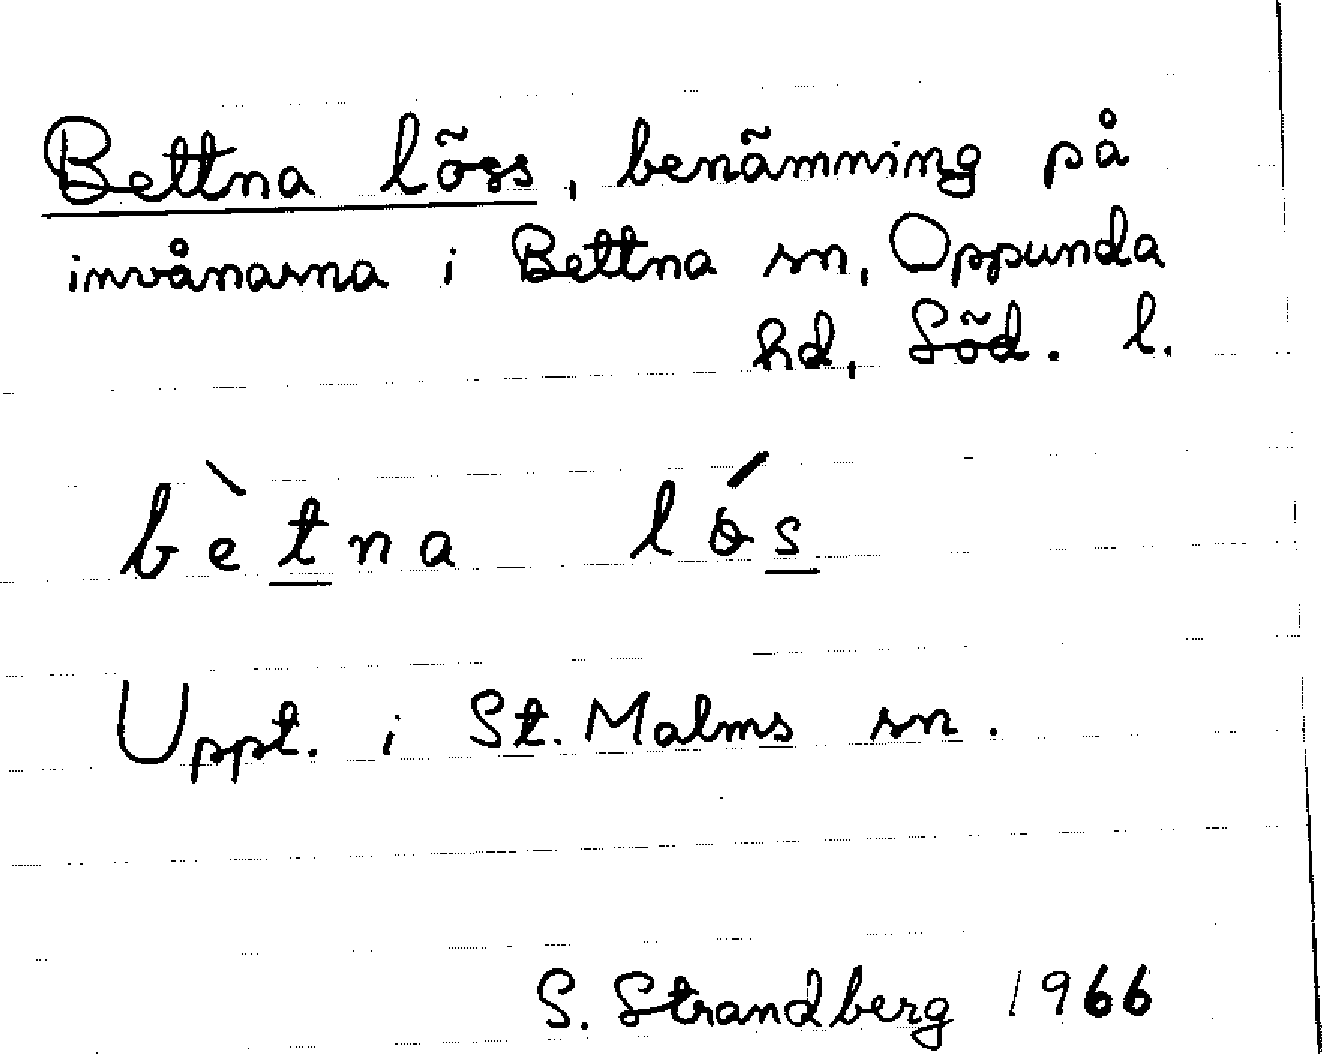 Bettna löss, benämning på
invånarna i Bettna sn, Oppunda
hd, Söd. l.
bètna lǿs
Uppt. i St. Malms sn.
S. Strandberg 1966